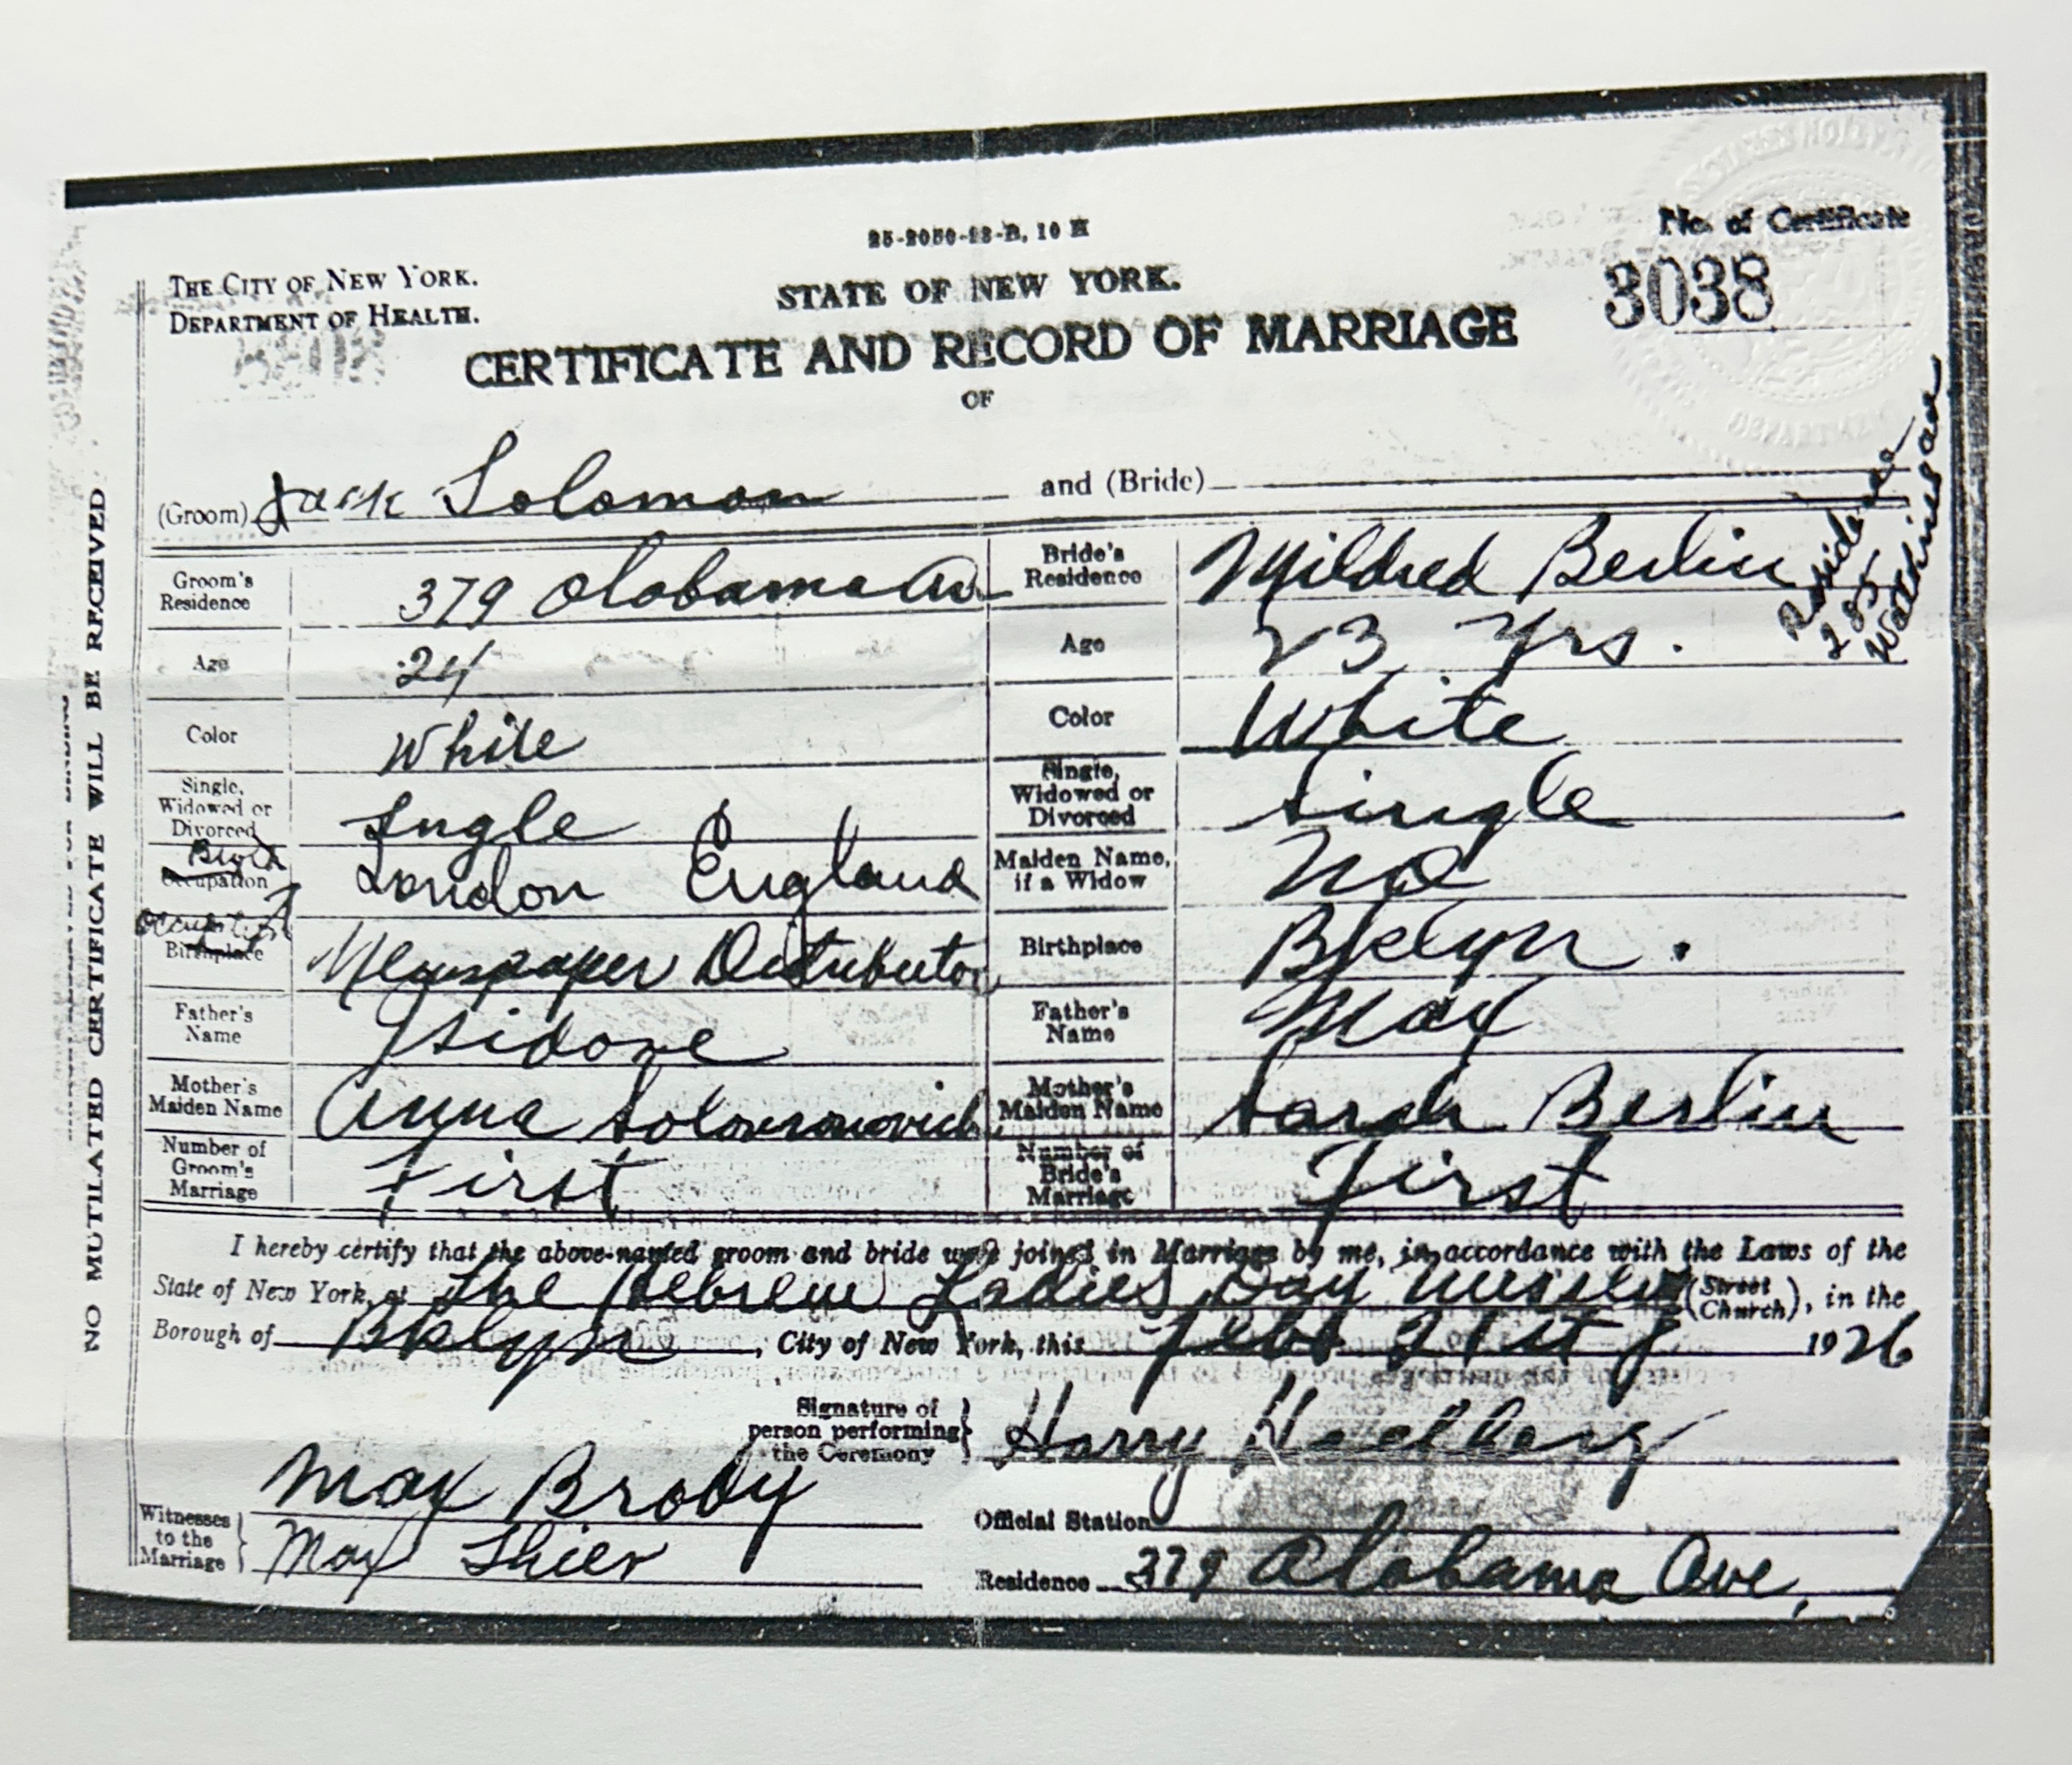 25-2050-23-B, 10 M
No. of Certificate
3038
THE CITY OF NEW YORK.
DEPARTMENT OF HEALTH.
STATE OF NEW YORK.
CERTIFICATE AND RECORD OF MARRIAGE
OF
(Groom) Jack Solomon and (Bride)
Groom's Residence 379 Alabama Av Bride's Residence Mildred Berlin
Residence
285
Watkins ave
Age 24 Age 23 Yrs.
Color White Color White
Single, Widowed or Divorced Single Single, Widowed or Divorced Single
Birth Occupation London England Maiden Name, if a Widow No
Occupation Birthplace Newspaper Distributor Birthplace Bklyn.
Father's Name Isidore Father's Name Max
Mother's Maiden Name Anna Mother's Maiden Name Sarah Berlin
Number of Groom's Marriage First Number of Bride's Marriage First
I hereby certify that the above-named groom and bride were joined in Marriage by me, in accordance with the Laws of the
State of New York, at The Hebrew Ladies Day Nursery (Street Church), in the
Borough of Bklyn, City of New York, this Feb 21st 1926
Signature of person performing the Ceremony Harry
Witnesses to the Marriage Max Brody
Max Shier
Official Station
Residence 379 Alabama Ave,
NO MUTILATED CERTIFICATE WILL BE RECEIVED